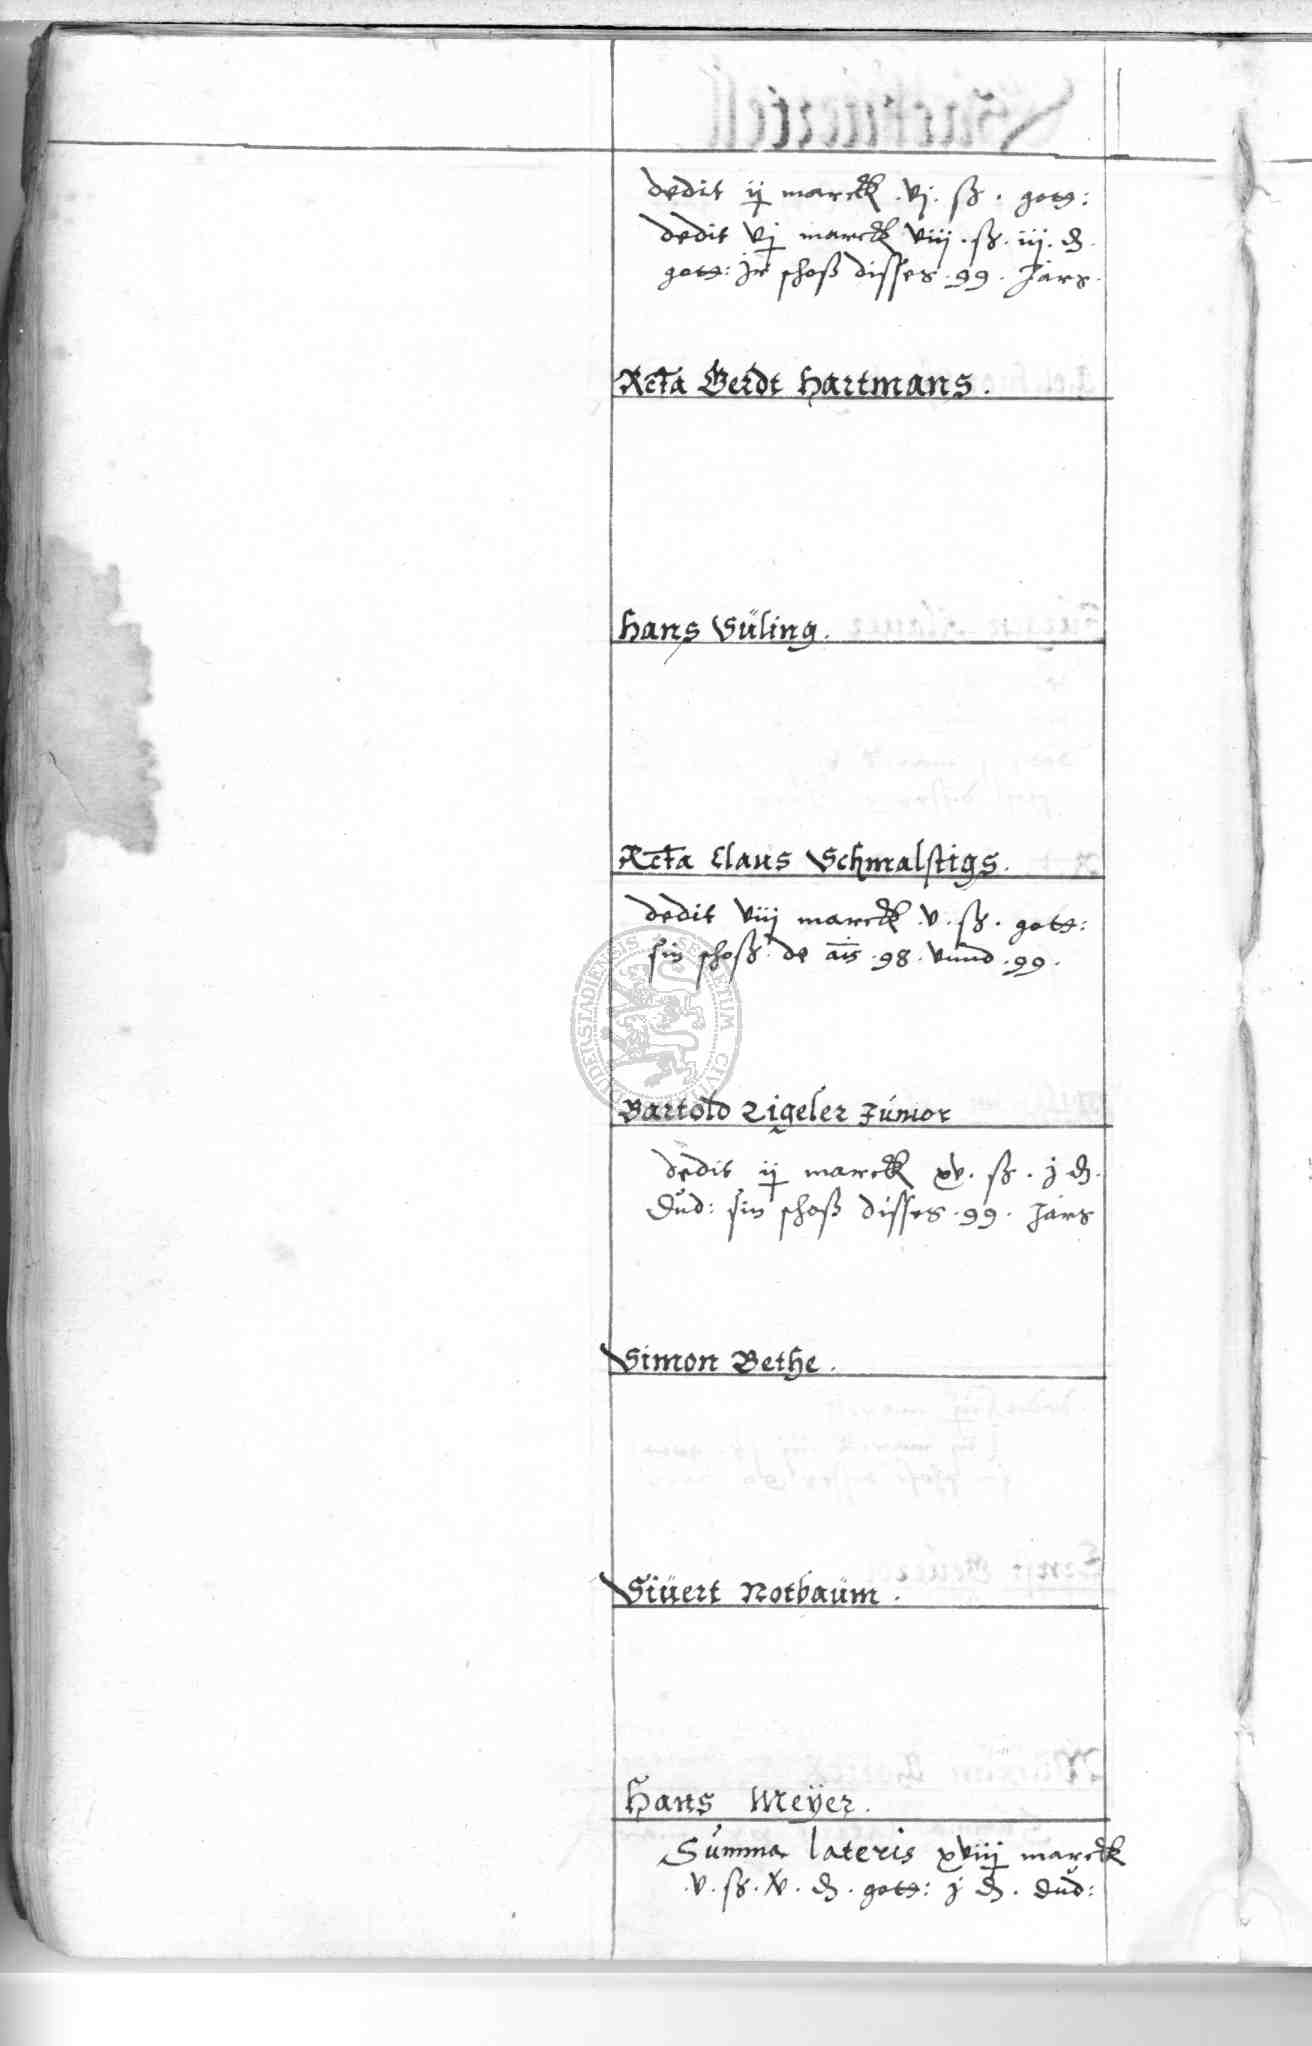 dedit ij marck .vj. ß. gots:
dedit vj marck viij .ß. iij. d.
gots: jr schoß disses .99. Jars.
Rcta Gerdt Hartmans.
Hans Süling.
Rcta Claus Schmalstigs.
dedit viij marck .v. ß. gots:
sin schoß de ais .98. vnnd .99.
Bartold Zigeler Junior
dedit ij marck xv. ß. j d.
Dud: sin schoß disses .99. Jars
Simon Bethe.
Siuert Notbaum.
Hans Meÿer.
Summa lateris xviij marck
.v. ß. xv. d. gots: j d. dud:
SECRETUM CIVITATIS DUDERSTADIENSIS